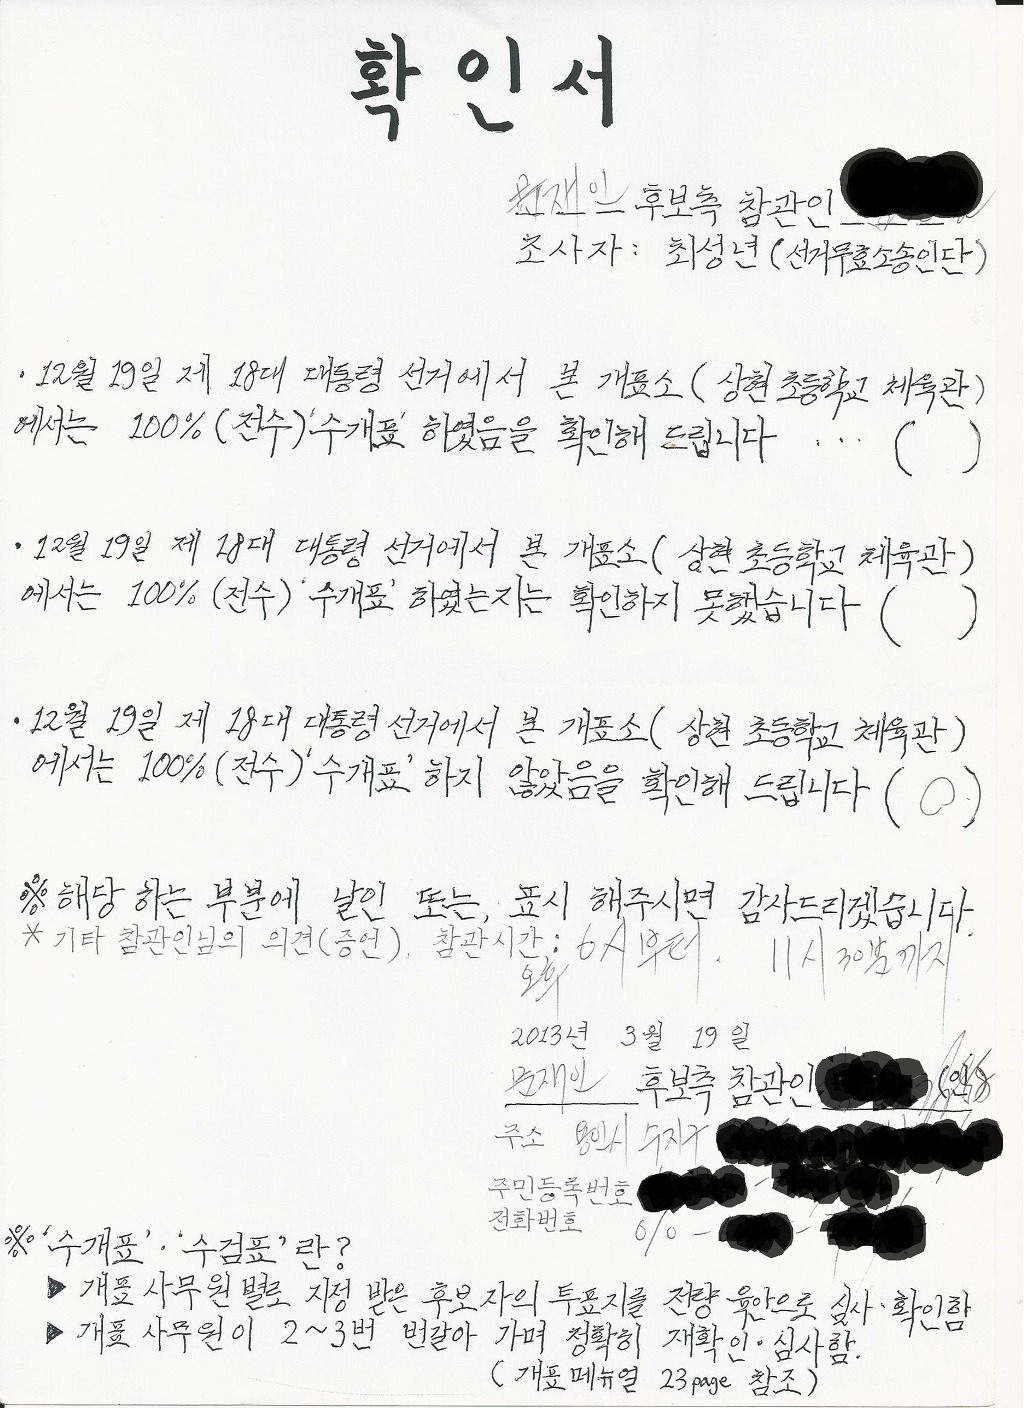 확인서
문재인 후보측 참관인
조사자: 최성년 (선거무효소송인단)
· 12월 19일 제 18대 대통령 선거에서 본 개표소 (상현초등학교 체육관)
에서는 100% (전수) '수개표' 하였음을 확인해 드립니다 ... ( )
· 12월 19일 제 18대 대통령 선거에서 본 개표소 (상현 초등학교 체육관)
에서는 100% (전수) '수개표' 하였는지는 확인하지 못했습니다 ( )
· 12월 19일 제 18대 대통령 선거에서 본 개표소 (상현 초등학교 체육관)
에서는 100% (전수) '수개표' 하지 않았음을 확인해 드립니다 ( ○ )
※ 해당 하는 부분에 날인 또는, 표시 해주시면 감사드리겠습니다.
* 기타 참관인님의 의견(증언), 참관시간: 6시부터. 11시 30분까지
오후
2013년 3월 19일
문재인 후보측 참관인 (인)
주소 용인시 수지구
주민등록번호 -
전화번호 010 - -
※ '수개표'·'수검표'란?
▶ 개표 사무원별로 지정 받은 후보자의 투표지를 전량 육안으로 심사·확인함
▶ 개표 사무원이 2~3번 번갈아 가며 정확히 재확인·심사함.
(개표메뉴얼 23page 참조)